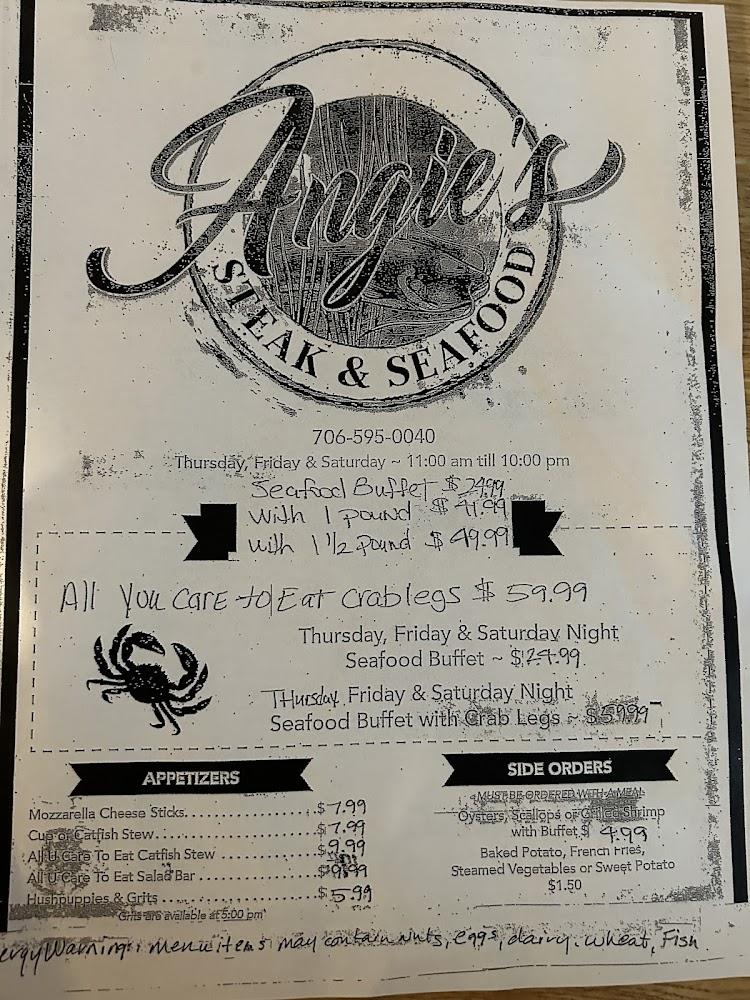 Angie's
STEAK & SEAFOOD
706-595-0040
Thursday, Friday & Saturday ~ 11:00 am till 10:00 pm
Seafood Buffet $ 24.99
With 1 pound $ 41.99
with 1 1/2 pound $ 49.99
All You Care to Eat Crab legs $ 59.99
Thursday, Friday & Saturday Night
Seafood Buffet ~ $24.99
THursday, Friday & Saturday Night
Seafood Buffet with Crab Legs ~ $59.99
APPETIZERS
Mozzarella Cheese Sticks $7.99
Cup of Catfish Stew $7.99
All U Care To Eat Catfish Stew $9.99
All U Care To Eat Salad Bar $
Hushpuppies & Grits $5.99
*Grits are available at 5:00 pm*
SIDE ORDERS
MUST BE ORDERED WITH A MEAL
Oysters, Scallops or Grilled Shrimp
with Buffet $ 4.99
Baked Potato, French Fries,
Steamed Vegetables or Sweet Potato
$1.50
Warning: menu items may contain nuts, eggs, dairy, wheat, Fish